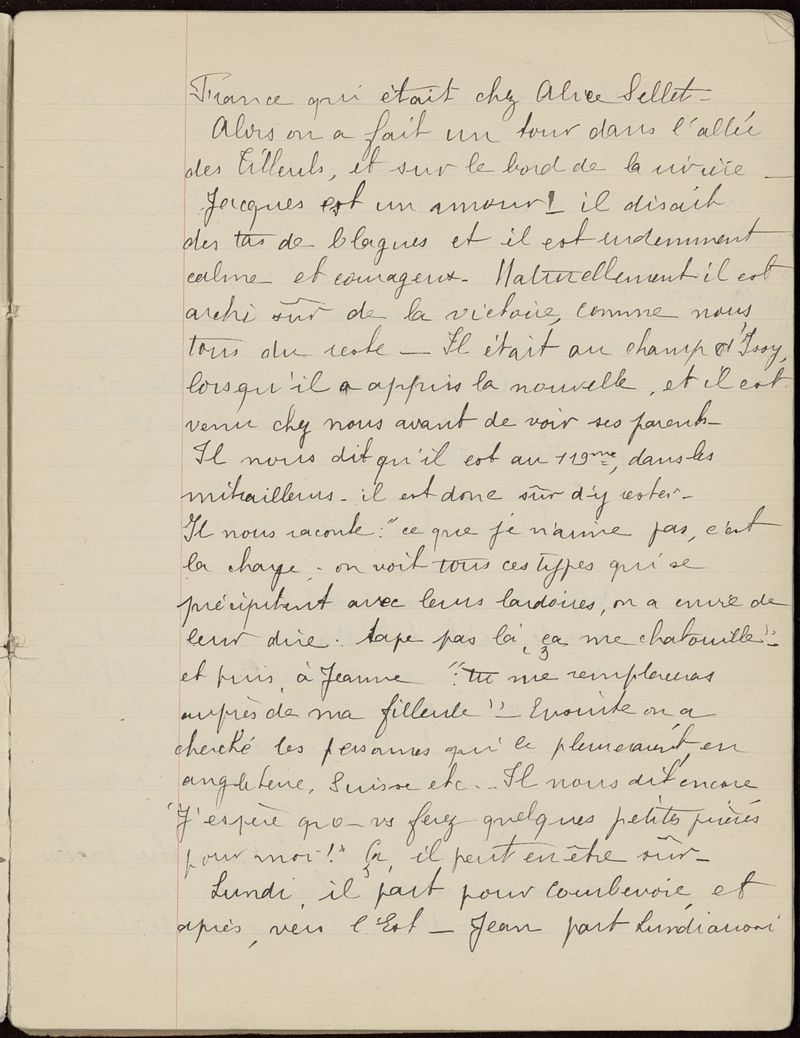 France qui était chez Alice Sellet_
Alors on a fait un tour dans l'allée
des Tilleuls, et sur le bord de la rivière _
Jacques est un amour! il disait
des tas de blagues et il est evidemment
calme et courageux_ Naturellement il est
archi sûr de la victoire, comme nous
tous du reste _ Il était au champ d'Issy,
lorsqu'il a appris la nouvelle, et il est
venu chez nous avant de voir ses parents_
Il nous dit qu'il est au 119me, dans les
mitrailleurs_ il est donc sûr d'y rester_
Il nous raconte: "ce que je n'aime pas, c'est
la charge; on voit tous ces types qui se
précipitent avec leurs lardoires, on a envie de
leur dire: tape pas là, ça me chatouille"_
et puis, à Jeanne "tu me remplaceras
auprès de ma filleule"_ Ensuite on a
cherché les personnes qui le pleureraient, en
angleterre, Suisse etc... Il nous dit encore
"J'espère que vs ferez quelques petites prières
pour moi!" Ça, il peut en être sûr_
Lundi, il part pour Courbevoie, et
après, vers l'Est _ Jean part Lundi aussi